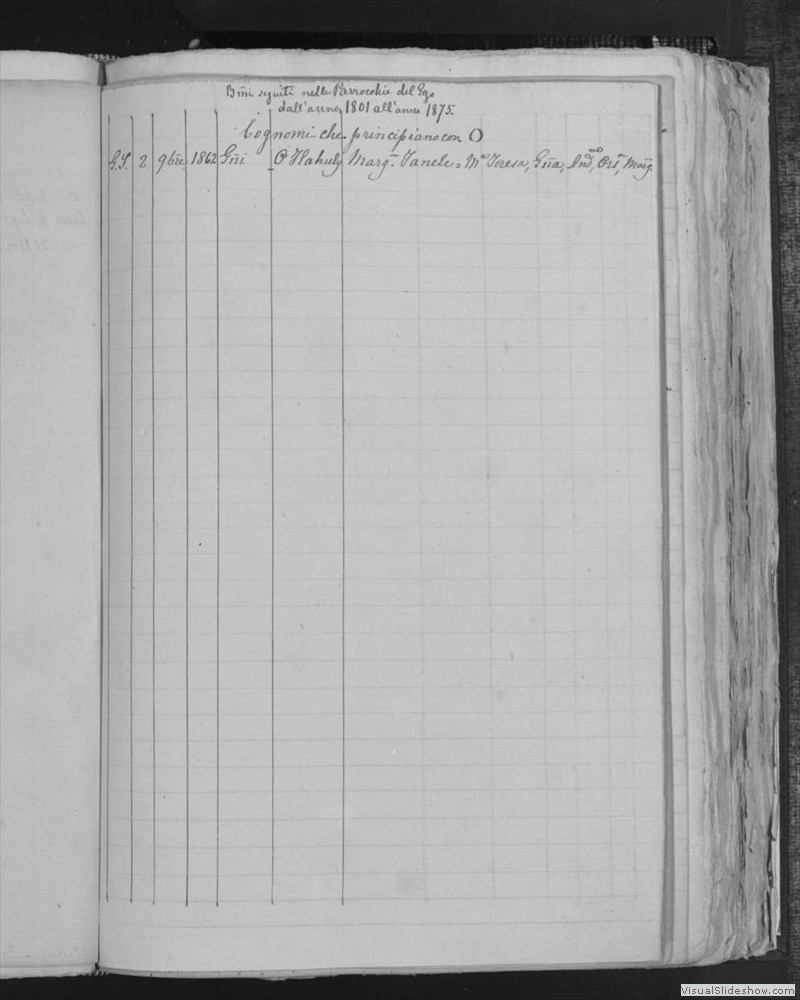 Bm̃i seguiti nelle Parrocchie del Gzo
dall'anno 1801 all'anno 1875.
Cognomi che principiano con O
G.S. 2 9bre 1862 Gñi O'Flahuly Marg. Vanele = Mª Teresa, Gña, And, Ors, Marg.
VisualSlideshow.com